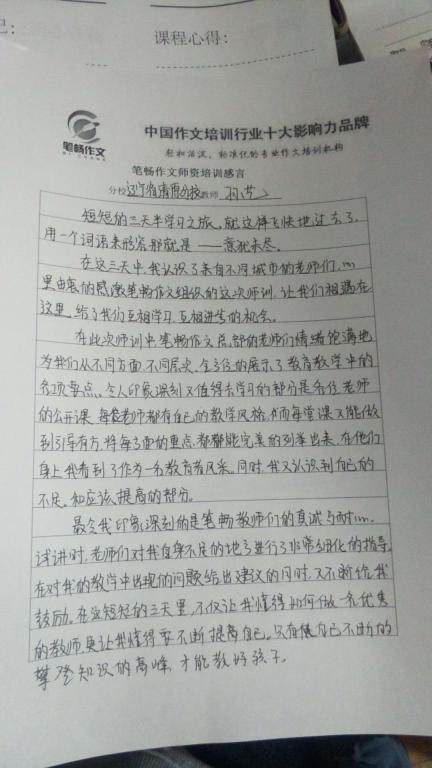 课程心得：
笔畅作文
中国作文培训行业十大影响力品牌
轻松活泼，标准化的专业作文培训机构
笔畅作文师资培训感言
分校 辽宁省清原分校 教师
短短的三天半学习之旅，就这样飞快地过去了，
用一个词语来形容那就是——意犹未尽。
在这三天中，我认识了来自不同城市的老师们，心
里由衷的感激笔畅作文组织的这次师训，让我们相遇在
这里，给了我们互相学习、互相进步的机会。
在此次师训中，笔畅作文总部的老师们情绪饱满地
为我们从不同方面、不同层次、全方位的展示了教育教学中的
各项要点。令人印象深刻又值得去学习的部分是各位老师
的公开课，每位老师都有自己的教学风格，而每堂课又能做
到引导有方，将每方面的重点都能完美的列举出来，在他们
身上我看到了作为一名教育者风采。同时，我又认识到自己的
不足，和应该提高的部分。
最令我印象深刻的是笔畅教师们的真诚与耐心。
试讲时，老师们对我自身不足的地方进行了非常细化的指导。
在对我的教学中出现的问题给出建议的同时，又不断给我
鼓励。在这短短的三天里，不仅让我懂得如何做一名优秀
的教师，更让我懂得要不断提高自己。只有使自己不断的
攀登知识的高峰，才能教好孩子。